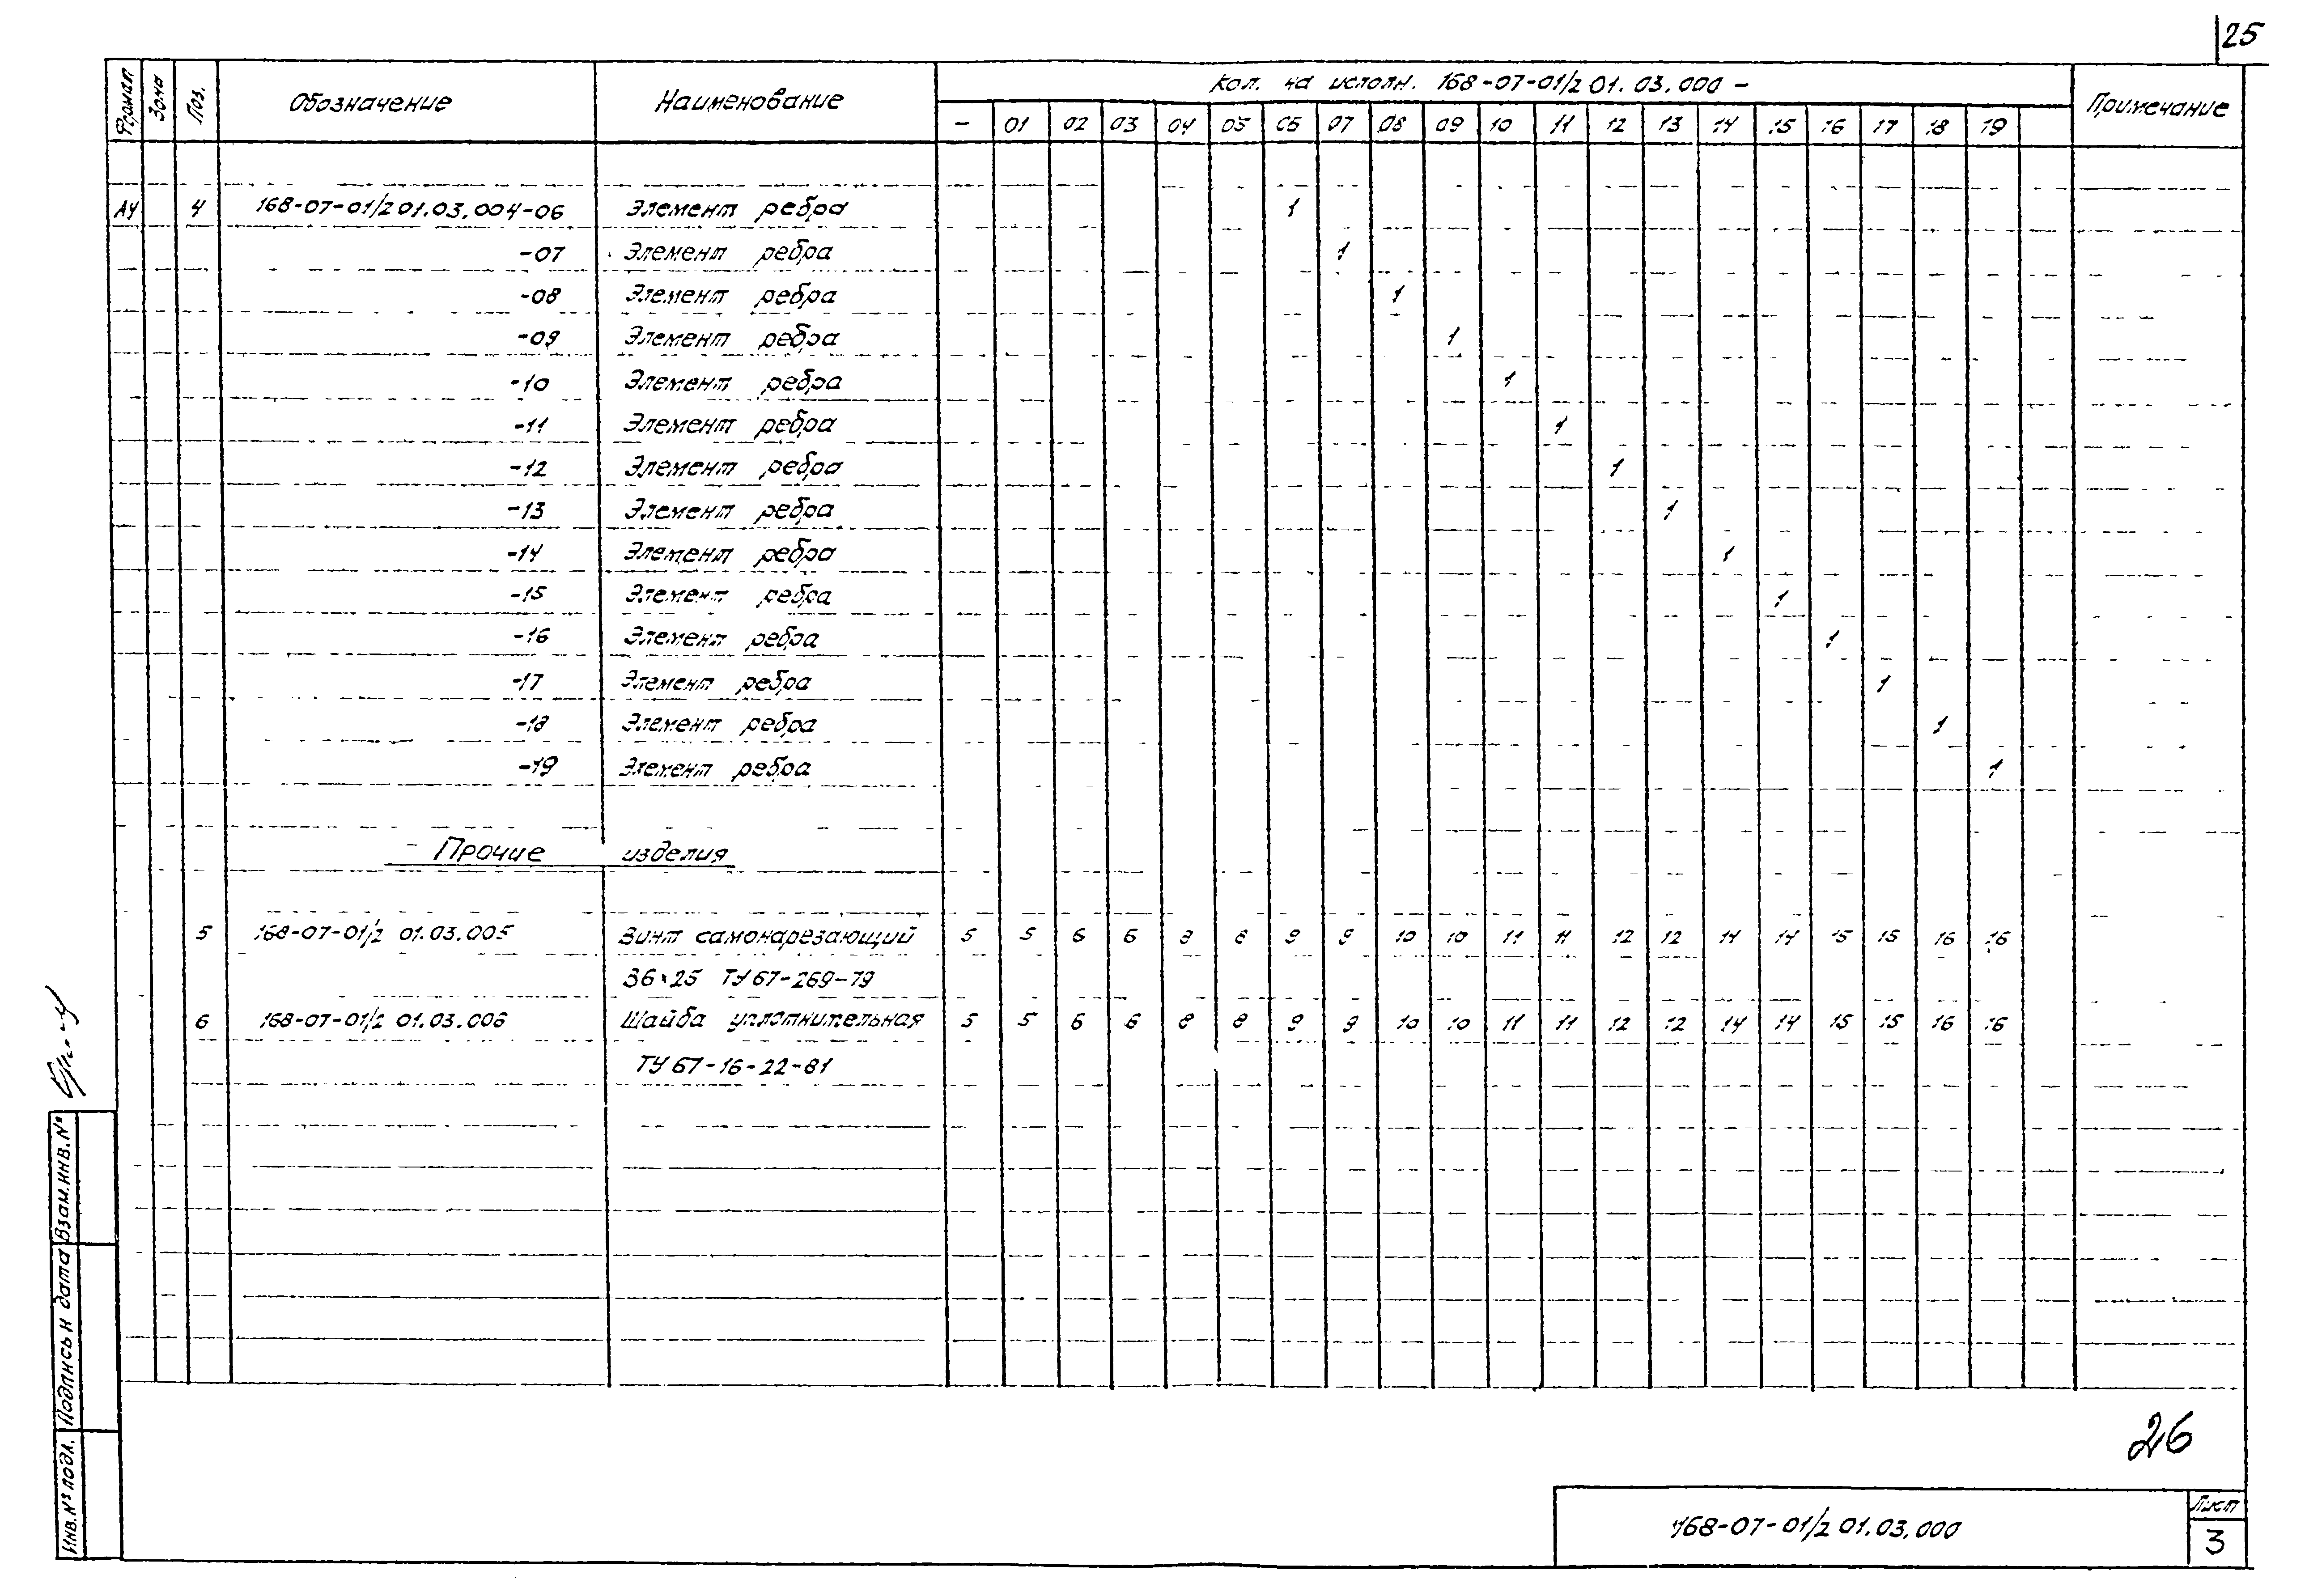 25
Формат Зона Поз. Обозначение Наименование Кол. на исполн. 168-07-01/2 01.03.000 - Примечание
- 01 02 03 04 05 06 07 08 09 10 11 12 13 14 15 16 17 18 19
А4 4 168-07-01/2 01.03.004-06 Элемент ребра 1
-07 Элемент ребра 1
-08 Элемент ребра 1
-09 Элемент ребра 1
-10 Элемент ребра 1
-11 Элемент ребра 1
-12 Элемент ребра 1
-13 Элемент ребра 1
-14 Элемент ребра 1
-15 Элемент ребра 1
-16 Элемент ребра 1
-17 Элемент ребра 1
-18 Элемент ребра 1
-19 Элемент ребра 1
Прочие изделия
5 168-07-01/2 01.03.005 Винт самонарезающий 5 5 6 6 8 8 9 9 10 10 11 11 12 12 14 14 15 15 16 16
В6×25 ТУ 67-269-79
6 168-07-01/2 01.03.006 Шайба уплотнительная 5 5 6 6 8 8 9 9 10 10 11 11 12 12 14 14 15 15 16 16
ТУ 67-16-22-81
Взам.инв.№
Подпись и дата
Инв.№ подл.
26
168-07-01/2 01.03.000
Лист
3